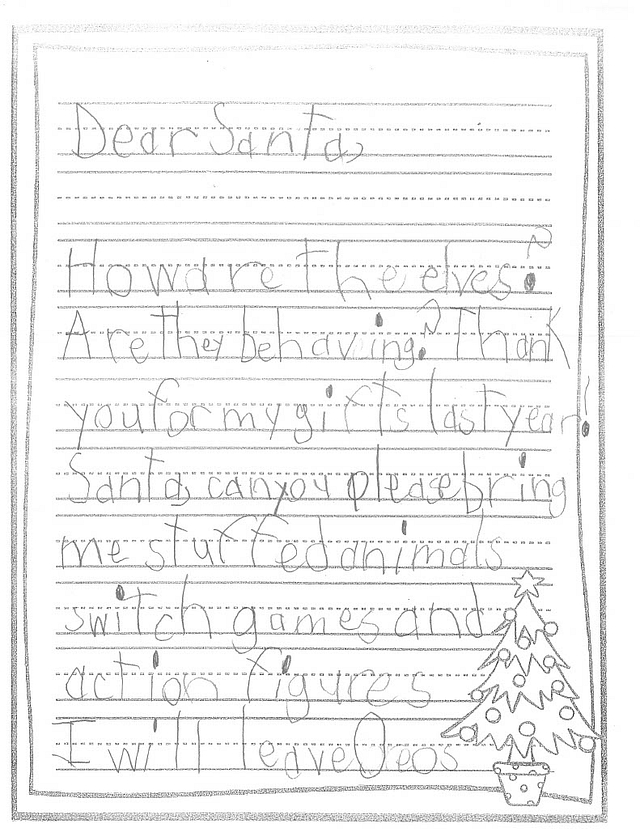 Dear Santa,
How are the elves?
Are they behaving? Thank
you for my gifts last year!
Santa, can you please bring
me stuffed animals
switch games and
action figures
I will leave Oeos